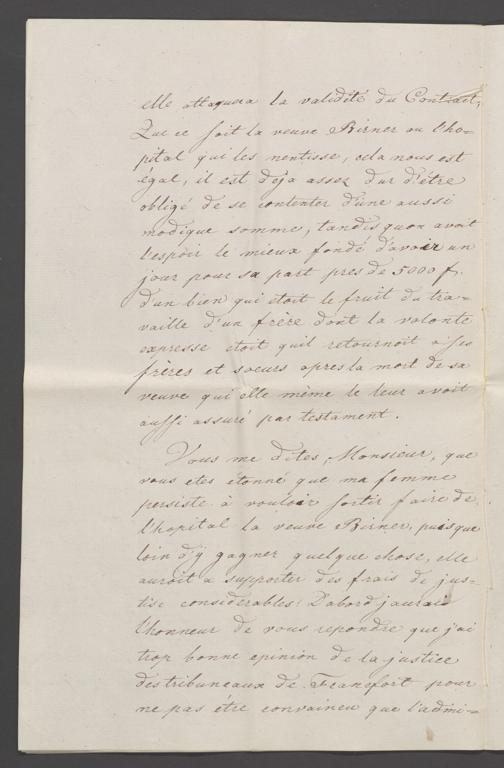 elle attaquera la validité du Contract,
Que ce soit la veuve Birner ou l'ho-
pital qui les nentisse, cela nous est
égal, il est deja assez dur d'être
obligé de se contenter d'une aussi
modique somme, tandis quon avoit
l'espoir le mieux fondé d'avoir un
jour pour sa part pres de 5000 f.
d'un bien qui etoit le fruit du tra-
vaille d'un frère dont la volonte
expresse etoit quil retournoit a ses
frères et soeurs apres la mort de sa
veuve qui elle même le leur avoit
aussi assuré par testament.
Vous me dites, Monsieur, que
vous etes étonné que ma femme
persiste à vouloir sortir faire de
l'hopital la veuve Birner, puisque
loin d'y gagner quelque chose, elle
auroit a supporter des frais de jus-
tise considerables! D'abord jaurais
l'honneur de vous repondre que j'ai
trop bonne opinion de la justice
des tribuneaux de Francfort pour
ne pas étre convaincu que l'admi-